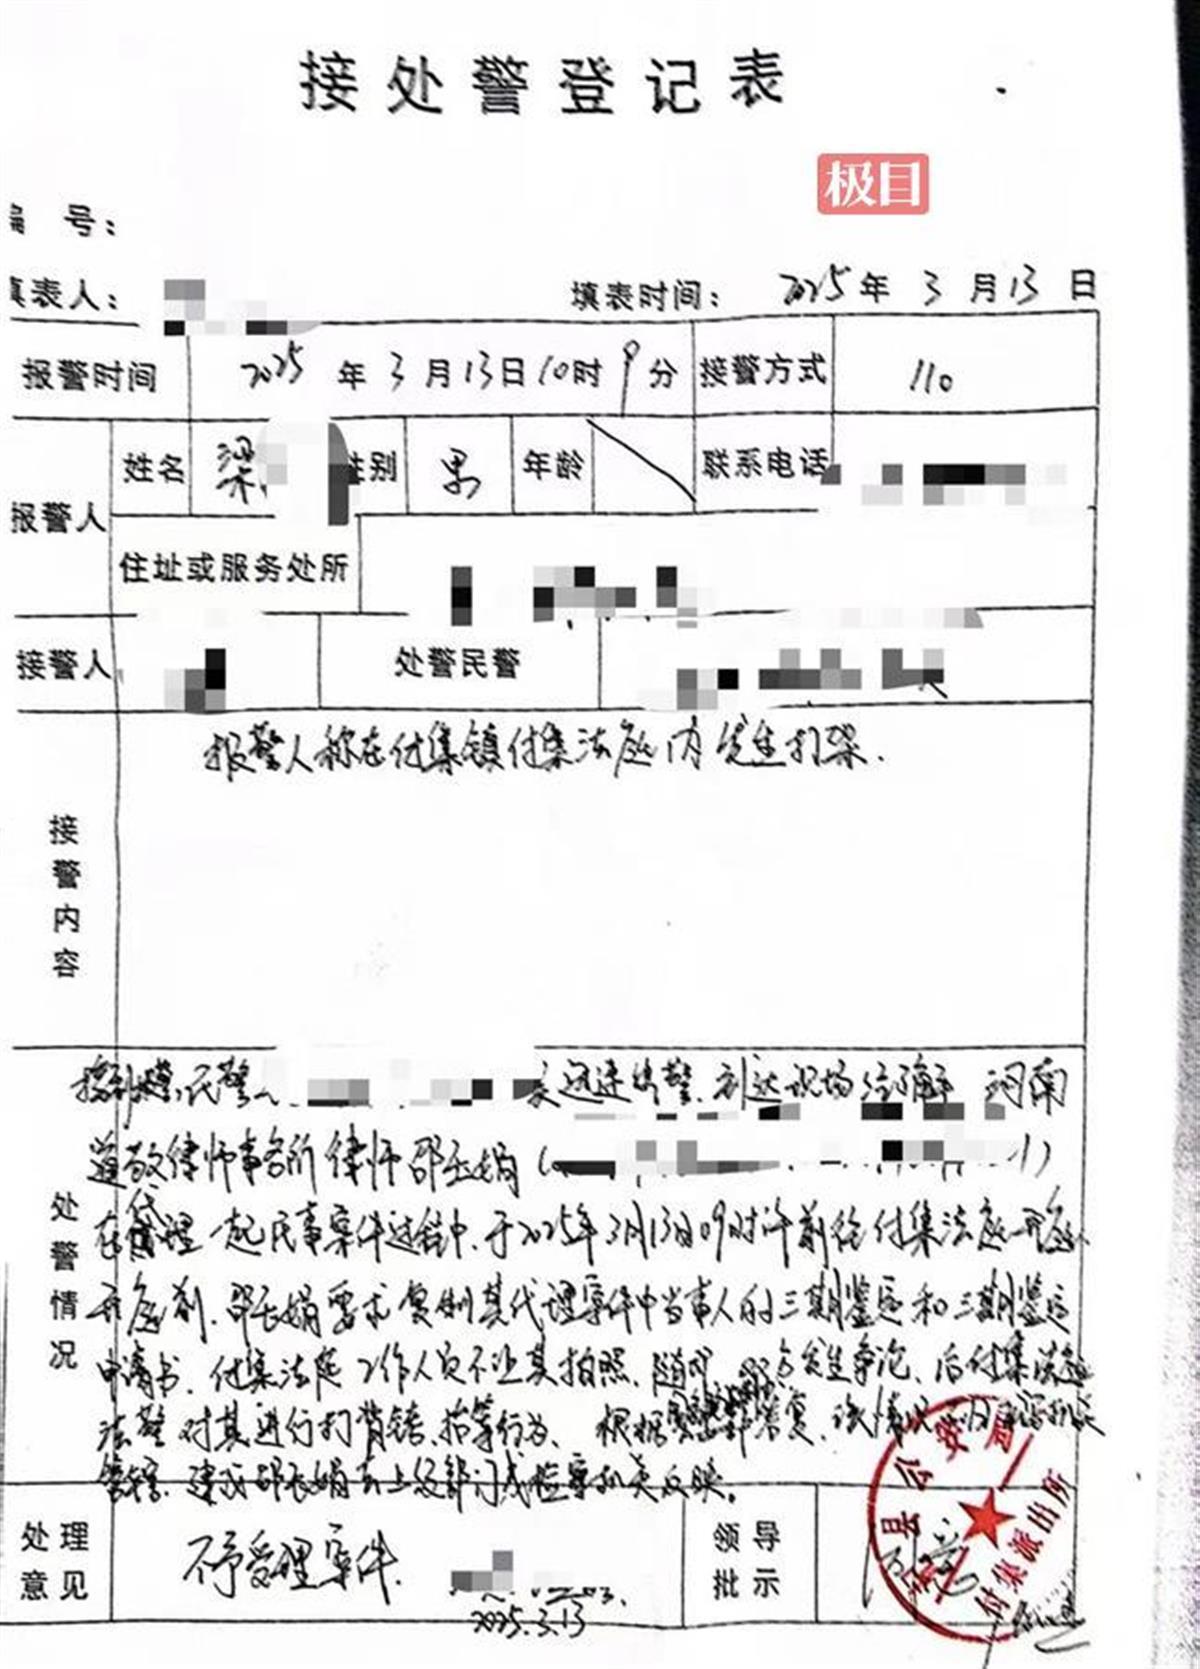 接处警登记表
极目
编 号：
填表人： 填表时间： 2025年 3 月 13 日
报警时间 2025 年 3 月 13 日 10 时 9 分 接警方式 110
报警人 姓名 梁 性别 男 年龄 联系电话
住址或服务处所
接警人 处警民警
接警内容
报警人称在付集镇付集法庭内发生打架.
处警情况
民警 迅速出警,到达现场经了解 河南
道敬律师事务所律师邵 娟(
在代理一起民事案件过程中,于2025年3月13日09时许前往付集法庭开庭,
开庭前,邵 娟要求复制其代理案件中当事人的三期鉴定和三期鉴定
申请书,付集法庭工作人员不让其拍照,随即 双方发生争论,后付集法庭
法警对其进行打背铐、掐等行为, 根据 答复,该情况
管辖,建议邵 娟去上级部门或检察机关反映。
处理意见 不予受理案件. 领导批示
2025.3.13
县公安局
付集派出所